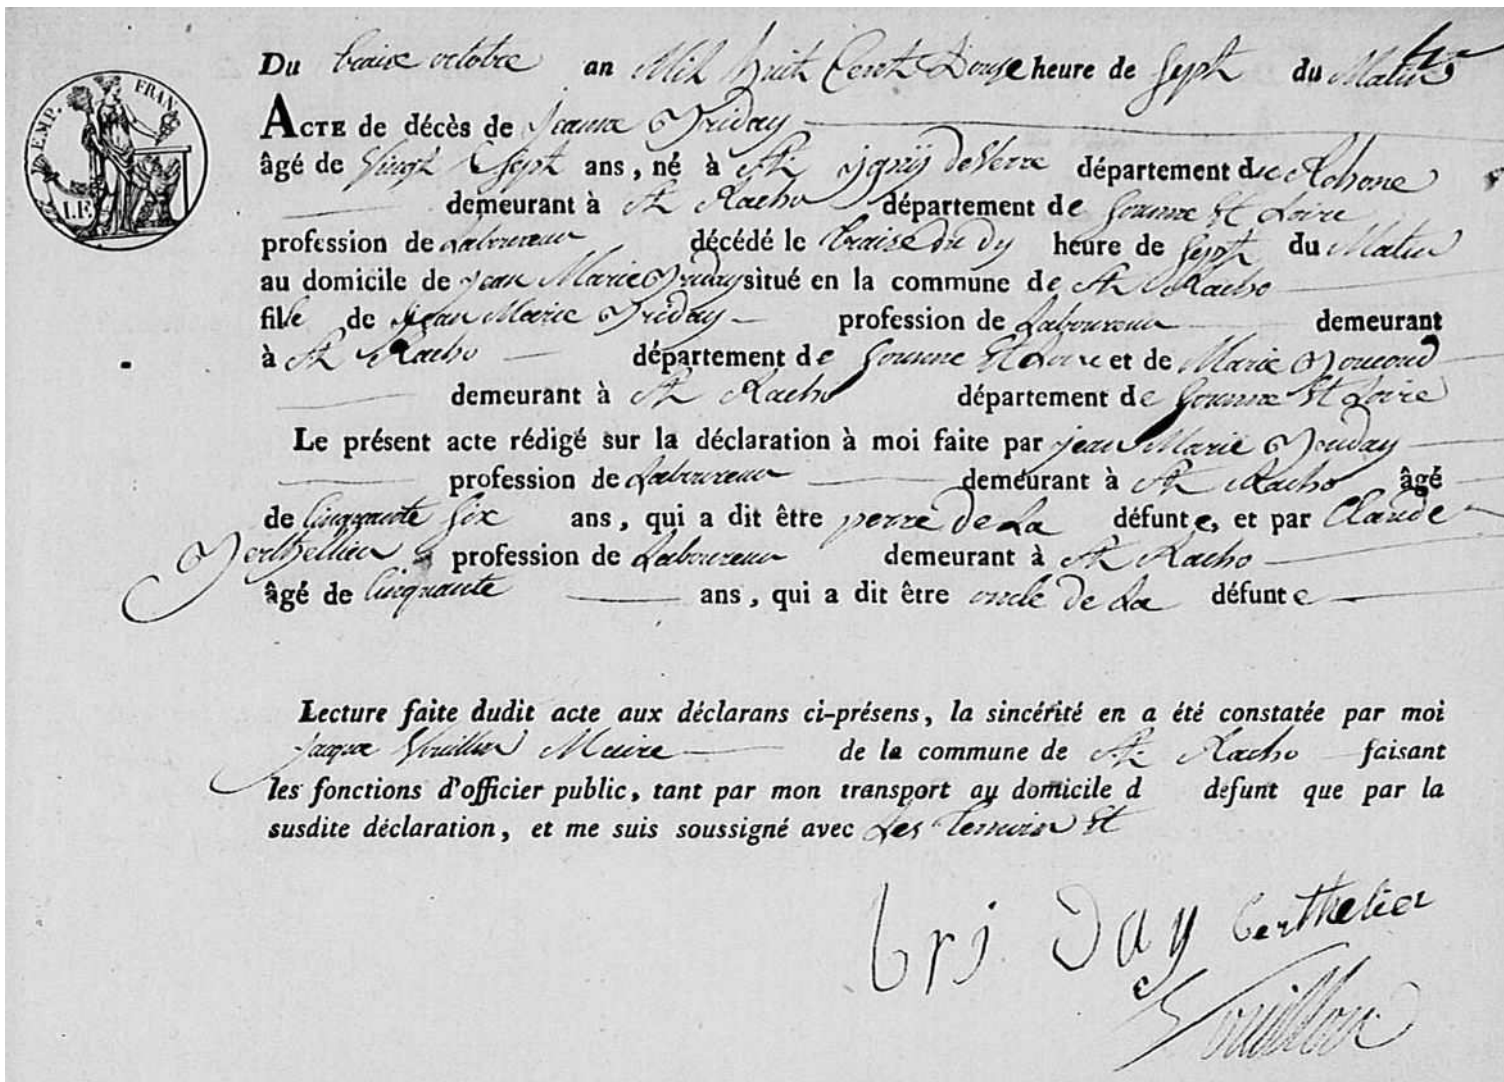 EMP. FRAN.
Du traise octobre an Mil huit Cent Douse heure de Sept du Matin
ACTE de décès de Jeanne Briday
âgé de Vingt Sept ans, né à St. ygnij de Verre département du Rohone
demeurant à St Racho département de Soanne Et Loire
profession de Laboureur décédé le traise du dy heure de Sept du Matin
au domicile de Jean Marie Briday situé en la commune de St Racho
fille de Jean Marie Briday profession de Laboureur demeurant
à St Racho département de Soanne Et Loire et de Marie
demeurant à St Racho département de Soanne Et Loire
Le présent acte rédigé sur la déclaration à moi faite par jean Marie Briday
profession de Laboureur demeurant à St Racho âgé
de Cinquante Six ans, qui a dit être perre de La défunte, et par Claude
Berthellier profession de Laboureur demeurant à St Racho
âgé de Cinquante ans, qui a dit être oncle de La défunte
Lecture faite dudit acte aux déclarans ci-présens, la sincérité en a été constatée par moi
Jacque Vouillon Maire de la commune de St. Racho faisant
les fonctions d'officier public, tant par mon transport au domicile d défunt que par la
susdite déclaration, et me suis soussigné avec Les temoin Et
bri Day berthelier
Vouillon